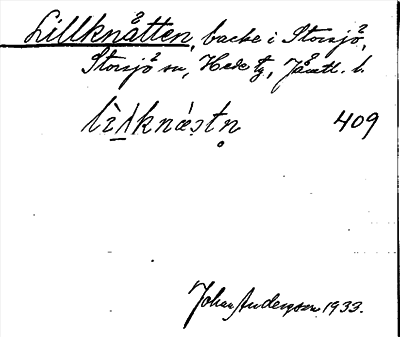 Lillknåtten, backe i Storsjö,
Storsjö sn, Hede tg, Jämtl. l.
lìlknástn̥ 409
Johan Anderson 1933.